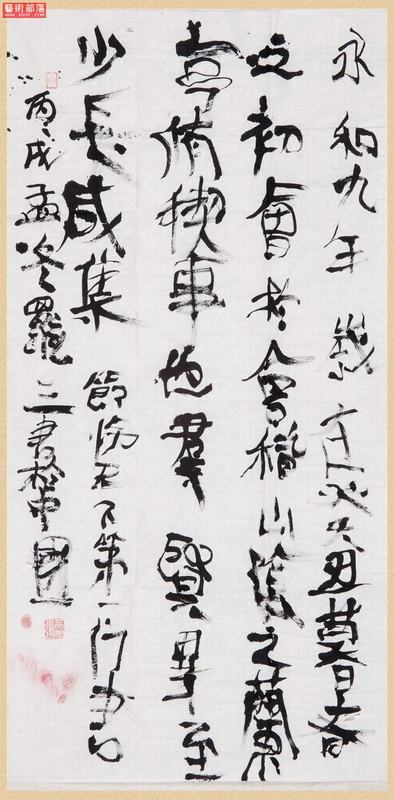 藝術部落
永和九年歲在癸丑暮春
之初會於會稽山陰之蘭
亭脩禊事也羣賢畢至
少長咸集 節臨天下第一行書
丙戌孟冬羅三書於中國